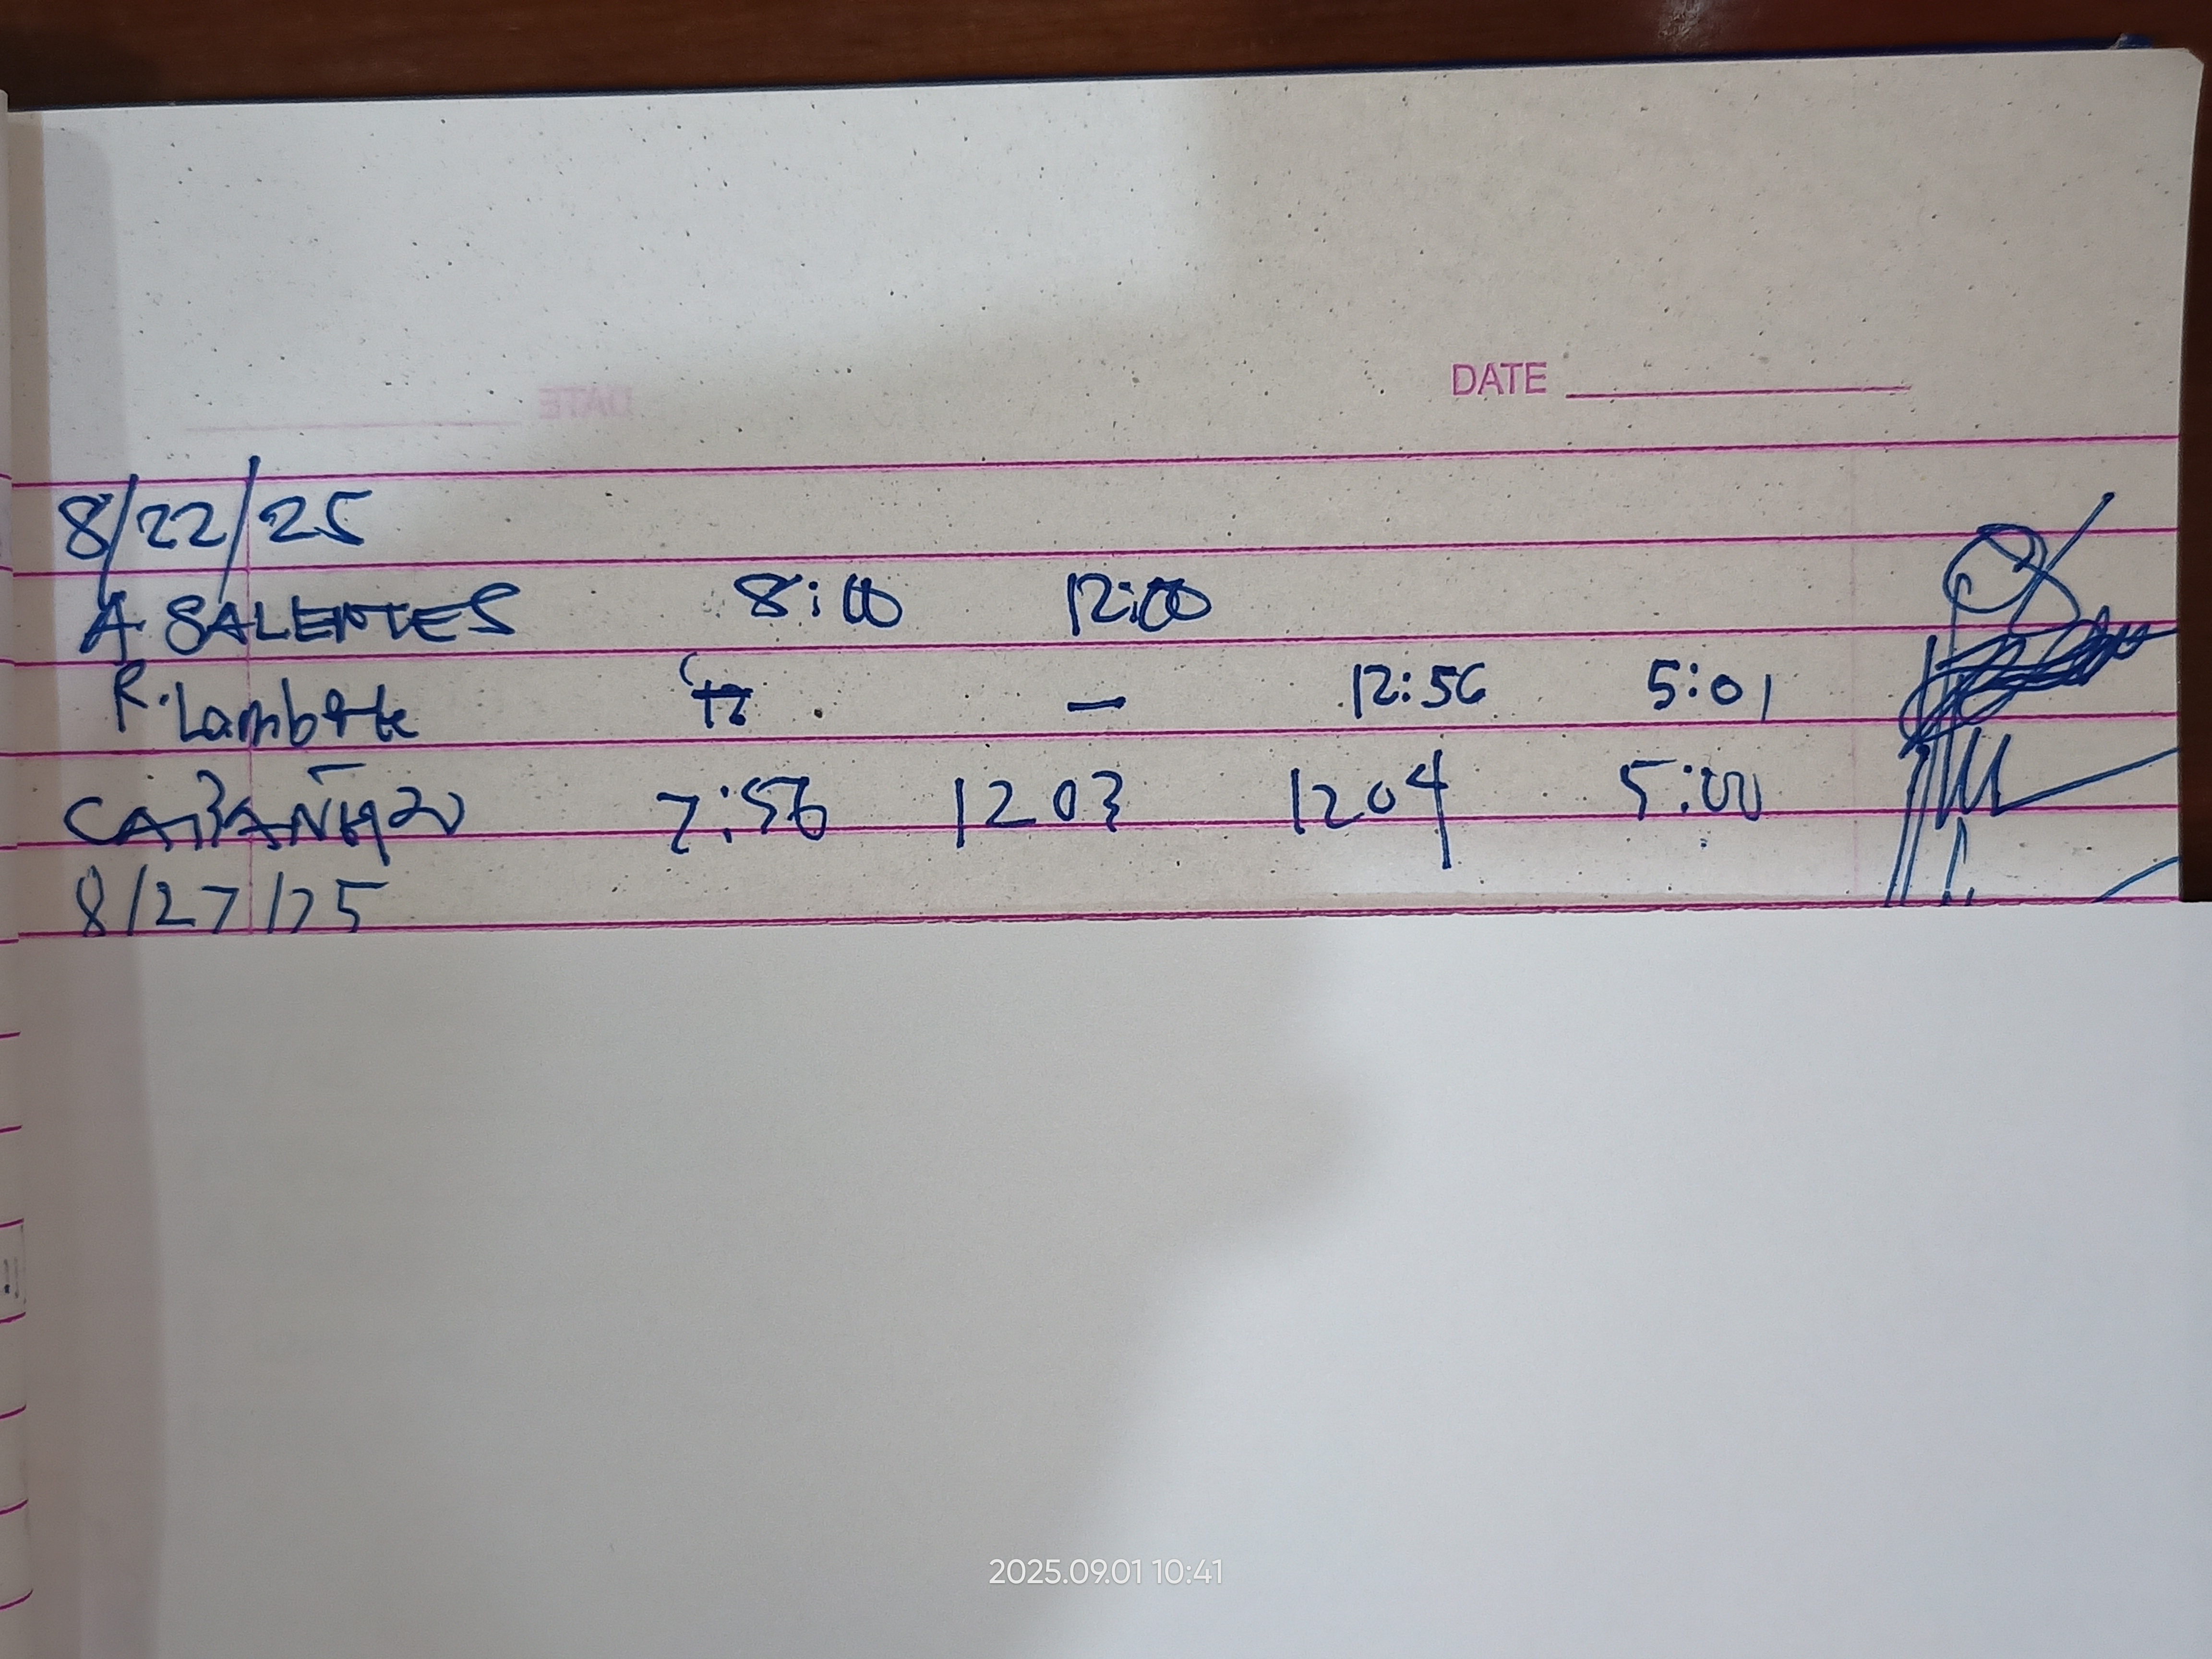 DATE
8/22/25
A. SALENTES 8:00 12:00
R. Lamberte — 12:56 5:01
7:56 1203 1204 5:00
8/27/25
2025.09.01 10:41